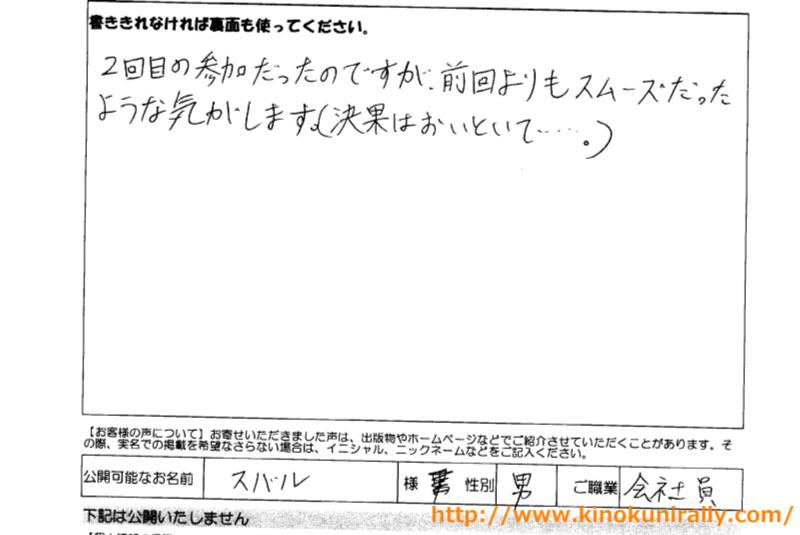 書ききれなければ裏面も使ってください。
2回目の参加だったのですが、前回よりもスムーズだった
ような気がします。(決果はおいといて……。)
【お客様の声について】お寄せいただきました声は、出版物やホームページなどでご紹介させていただくことがあります。そ
の際、実名での掲載を希望なさらない場合は、イニシャル、ニックネームなどをご記入ください。
公開可能なお名前 スバル 様 性別 男 ご職業 会社員
下記は公開いたしません
http://www.kinokunirally.com/